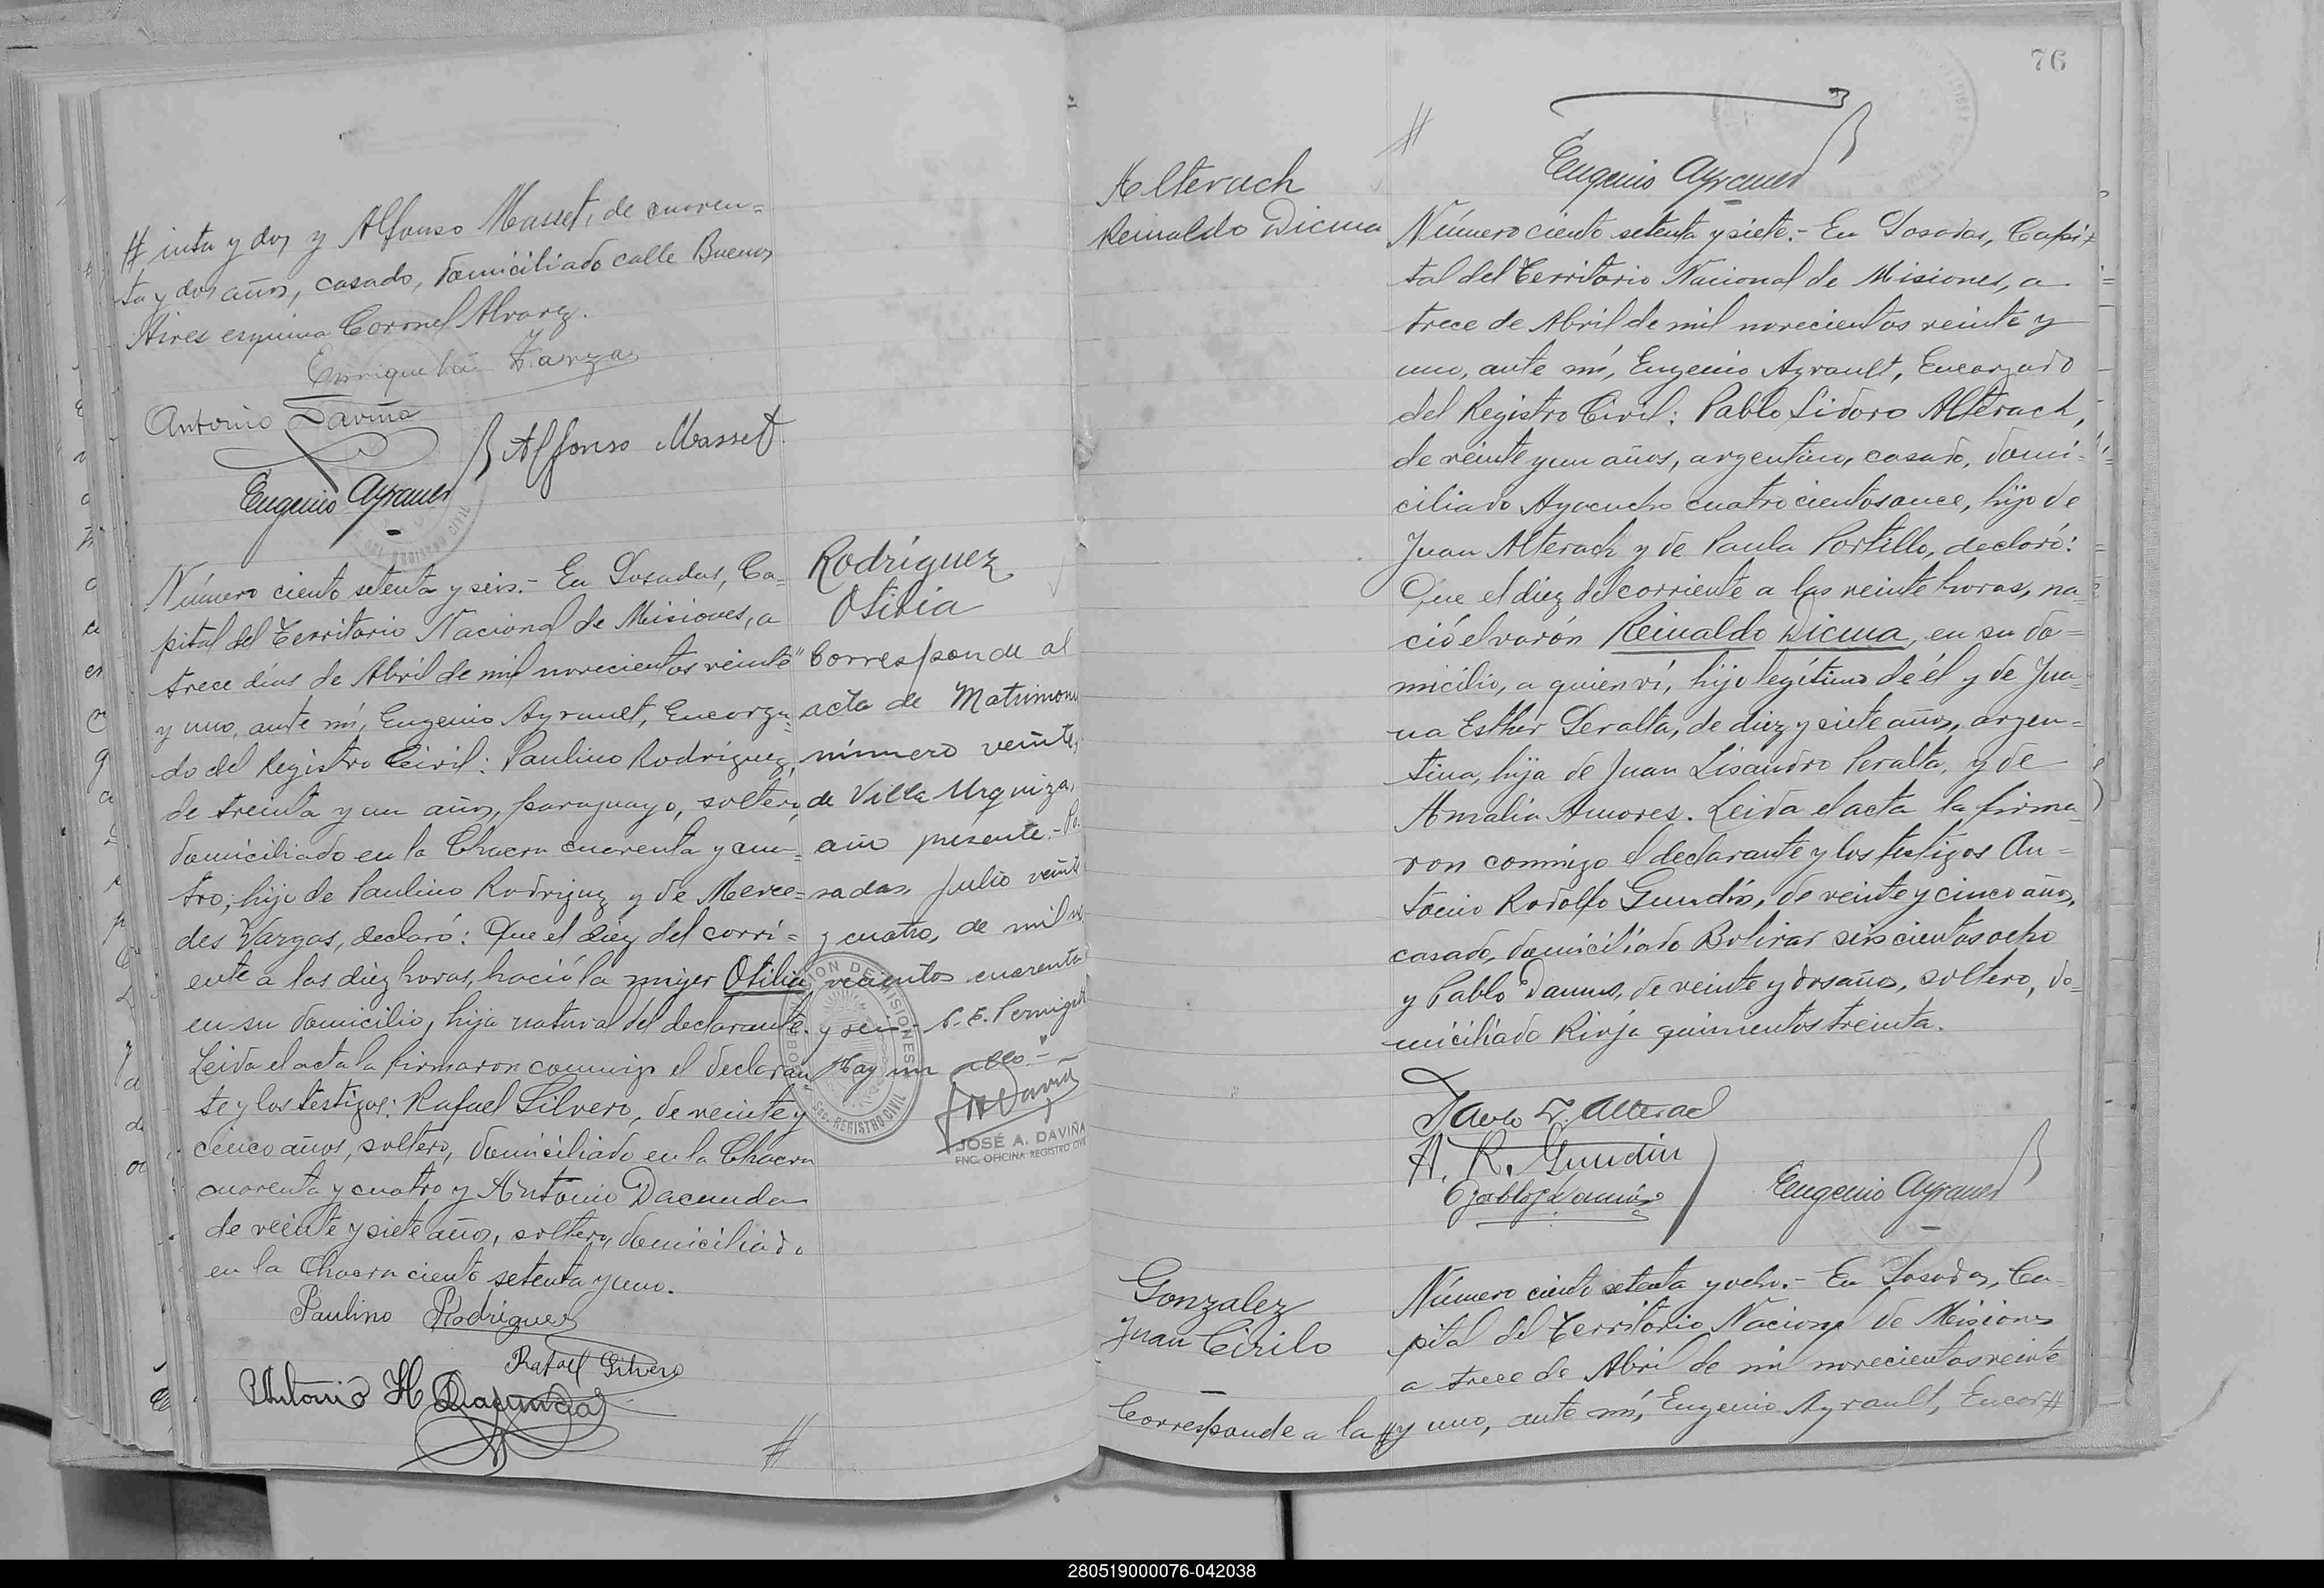 # inta y dos y Alfonso Masset, de cuaren=
ta y dos años, casado, domiciliado calle Buenos
Aires esquina Coronel Alvarez.
Enriqueta Zarza
Antonio Daviña
Alfonso Masset
Eugenio Ayrault
Número ciento setenta y seis.- En Posadas, Ca=
pital del Territorio Nacional de Misiones, a
trece días de Abril de mil novecientos veinte
y uno, ante mí, Eugenio Ayrault, Encarga=
do del Registro Civil: Paulino Rodriguez,
de treinta y un años, paraguayo, soltero,
domiciliado en la Chacra cuarenta y cua=
tro, hijo de Paulino Rodriguez y de Merce=
des Vargas, declaró: Que el diez del corri=
ente a las diez horas, nació la mujer Otilia
en su domicilio, hija natural del declarante.
Leida el acta la firmaron conmigo el declaran
te y los testigos: Rafael Silvero, de veinte y
cinco años, soltero, domiciliado en la Chacra
cuarenta y cuatro y Antonio Dacunda
de veinte y siete años, soltero, domiciliado
en la Chacra ciento setenta y uno.
Paulino Rodriguez
Rafael Silvero
Antonio H Dacunda
#
Rodríguez
Otilia
"Corresponde al
acta de Matrimoni
número veinte,
de Villa Urquiza,
año presente.- Po.
sadas, Julio veinte
y cuatro, de mil no
vecientos cuarenta
y seis.-
Hay un sello."-
GOBERNACION DE MISIONES
SEC. REGISTRO CIVIL
JOSÉ A. DAVIÑA
ENC. OFICINA REGISTRO CIVIL
76
#
Eugenio Ayrault
Alterach
Reinaldo Dicma
Número ciento setenta y siete.- En Posadas, Capi=
tal del Territorio Nacional de Misiones, a
trece de Abril de mil novecientos veinte y
uno, ante mí, Eugenio Ayrault, Encargado
del Registro Civil: Pablo Isidoro Alterach,
de veinte y un años, argentino, casado, domi=
ciliado Ayacucho cuatrocientos once, hijo de
Juan Alterach y de Paula Portillo, declaró:
Que el diez del corriente a las veinte horas, na=
ció el varón Reinaldo Dicma, en su do=
micilio, a quien ví, hijo legítimo de él y de Jua=
na Esther Peralta, de diez y siete años, argen=
tina, hija de Juan Lisandro Peralta, y de
Amalia Amores. Leida el acta la firma
ron conmigo el declarante y los testigos An=
tonio Rodolfo Gundín, de veinte y cinco años,
casado, domiciliado Bolivar seiscientos ocho
y Pablo Damus, de veinte y dos años, soltero, do=
miciliado Rioja quinientos treinta.
Pablo I. Alterach
A. R. Gundin
Pablo Damus
Eugenio Ayrault
Gonzalez
Juan Cirilo
Corresponde a la #
Número ciento setenta y ocho.- En Posadas, Ca=
pital del Territorio Nacional de Misiones
a trece de Abril de mil novecientos veinte
y uno, ante mí, Eugenio Ayrault, Encar#
280519000076-042038